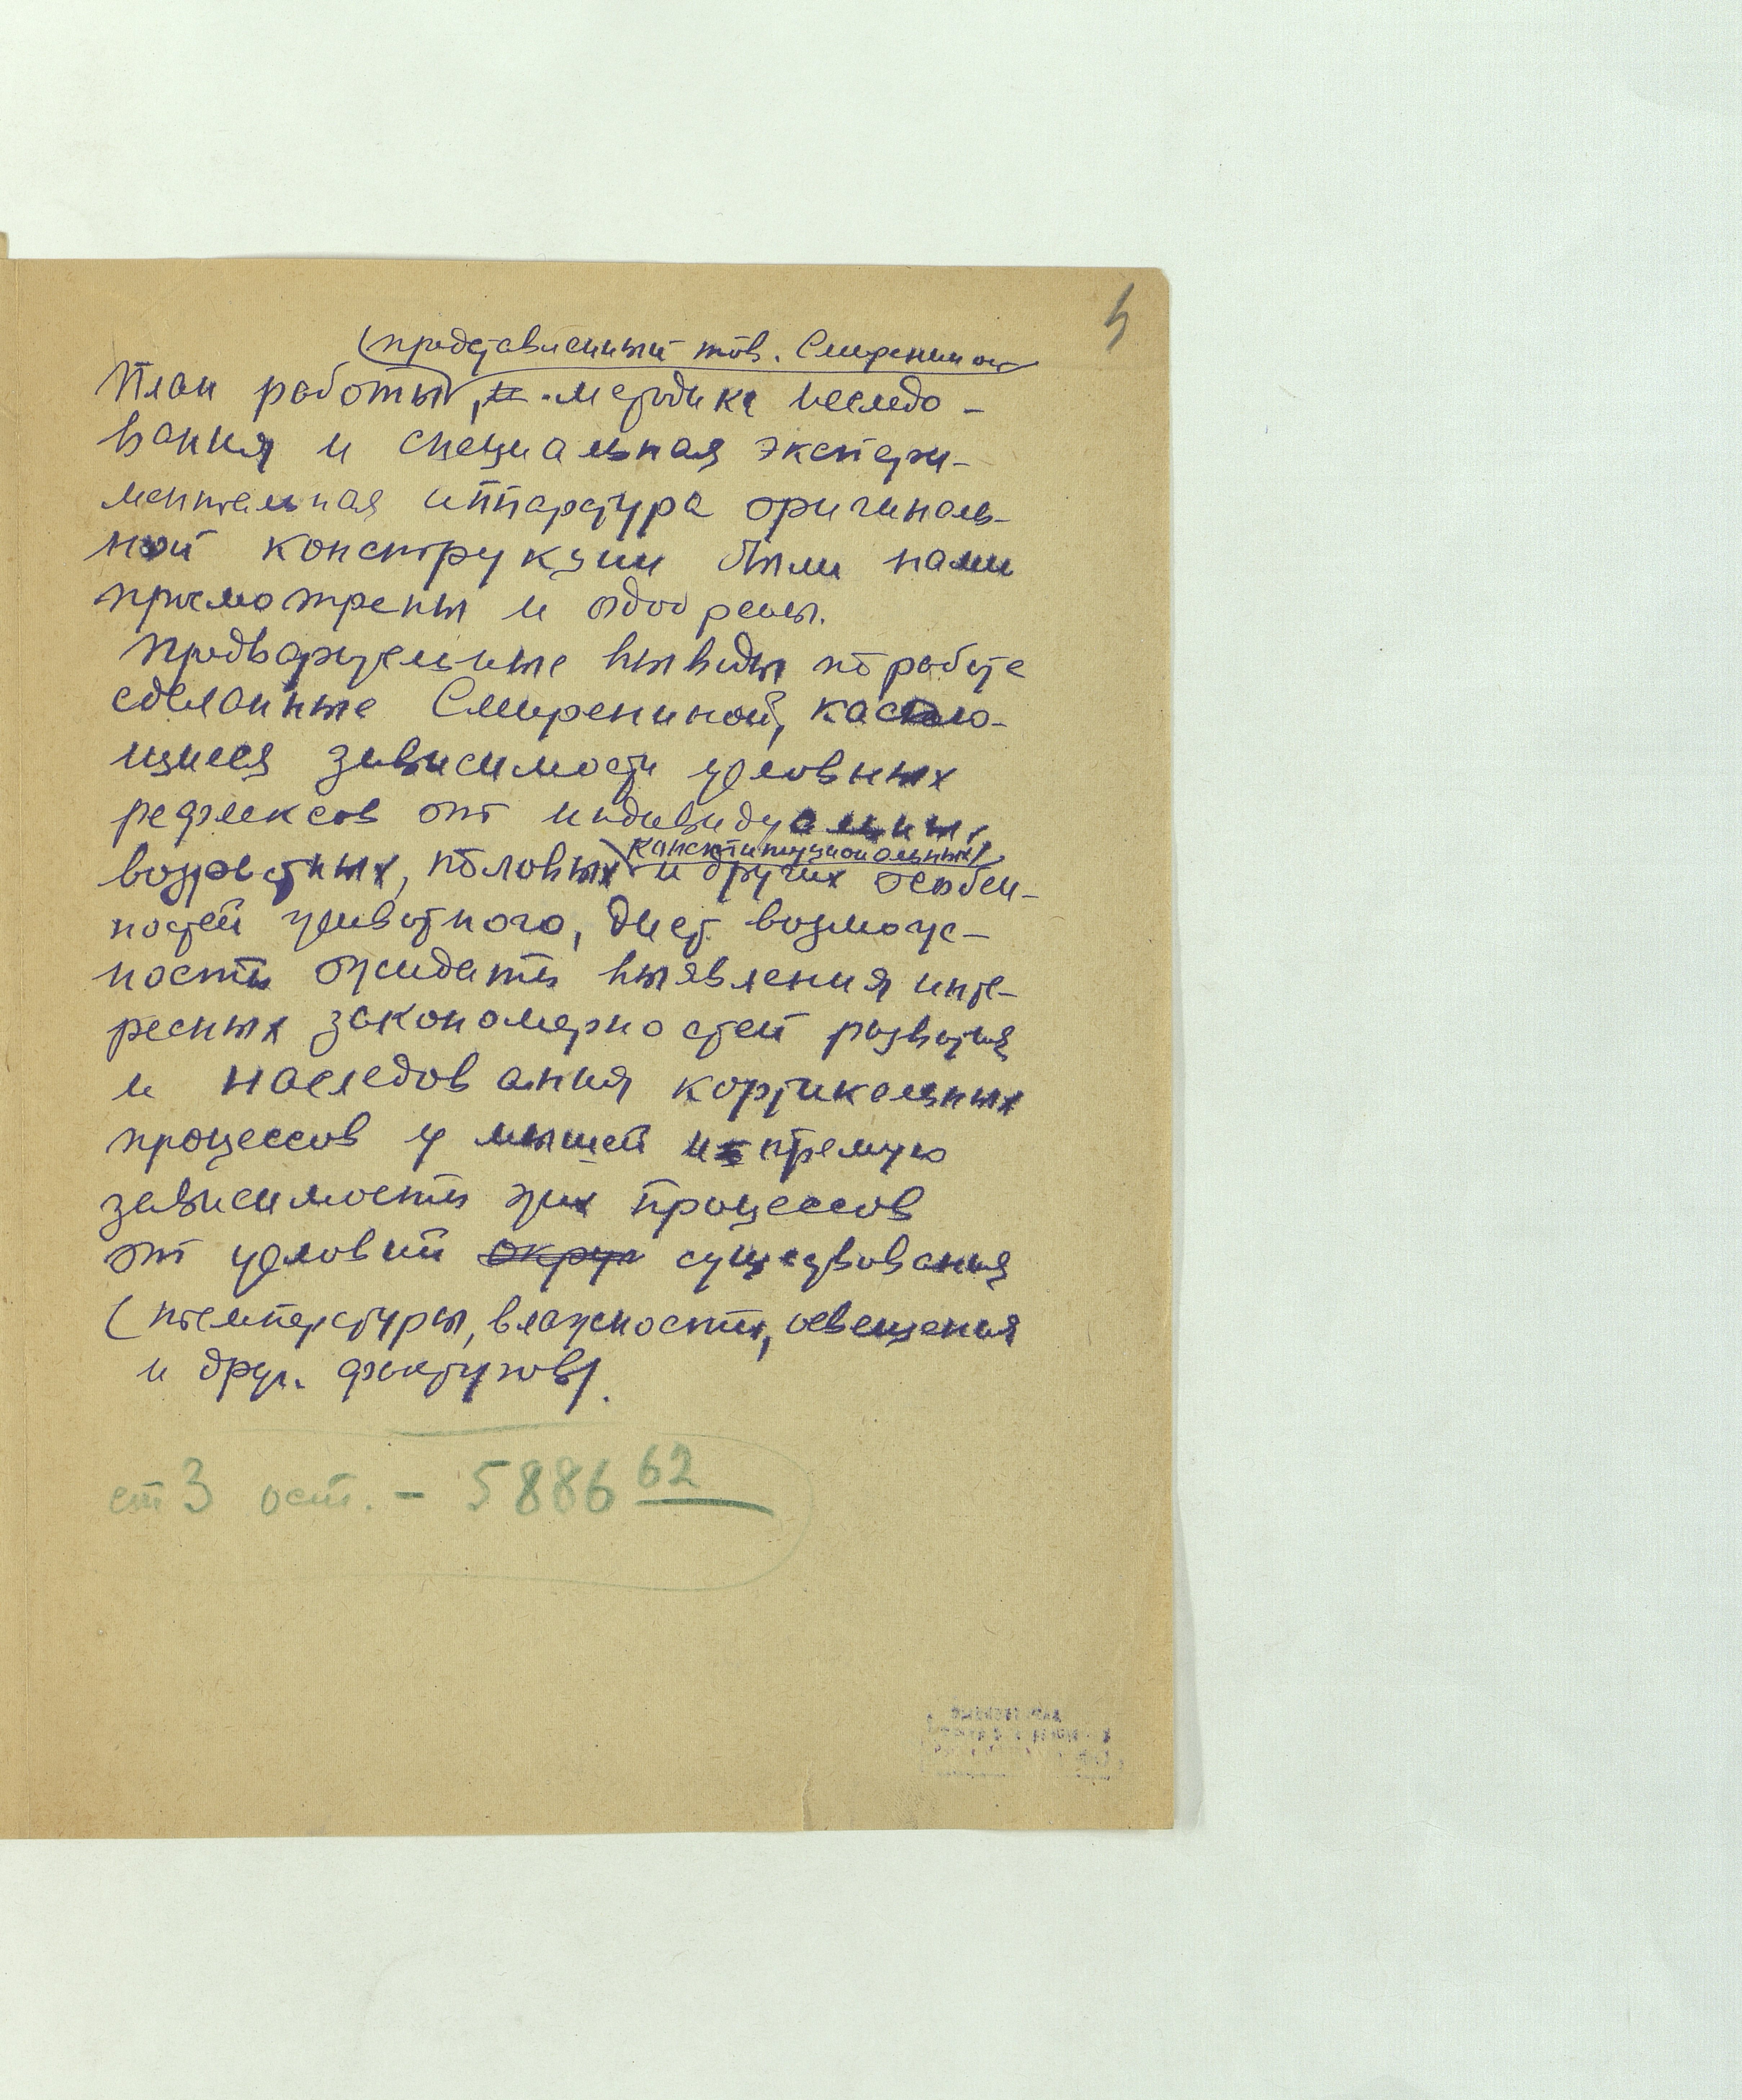 5
(представленный тов. Смирениной
План работы, методика исследо-
вания и специальная экспери-
ментальная аппаратура оригиналь-
ной конструкции были нами
просмотрены и одобрены.
Предварительные выводы по работе
сделанные Смирениной, касаю-
щиеся зависимости условных
рефлексов от индивидуальных,
конституциональных
возрастных, половых и других особен-
ностей животного, дает возмож-
ность ожидать выявления инте-
ресных закономерностей развития
и наследования кортикальных
процессов у мышей и прямую
зависимость этих процессов
от условий окруж существования
(температуры, влажности, освещения
и друг. факторов).
ст 3 ост. - 5886 62